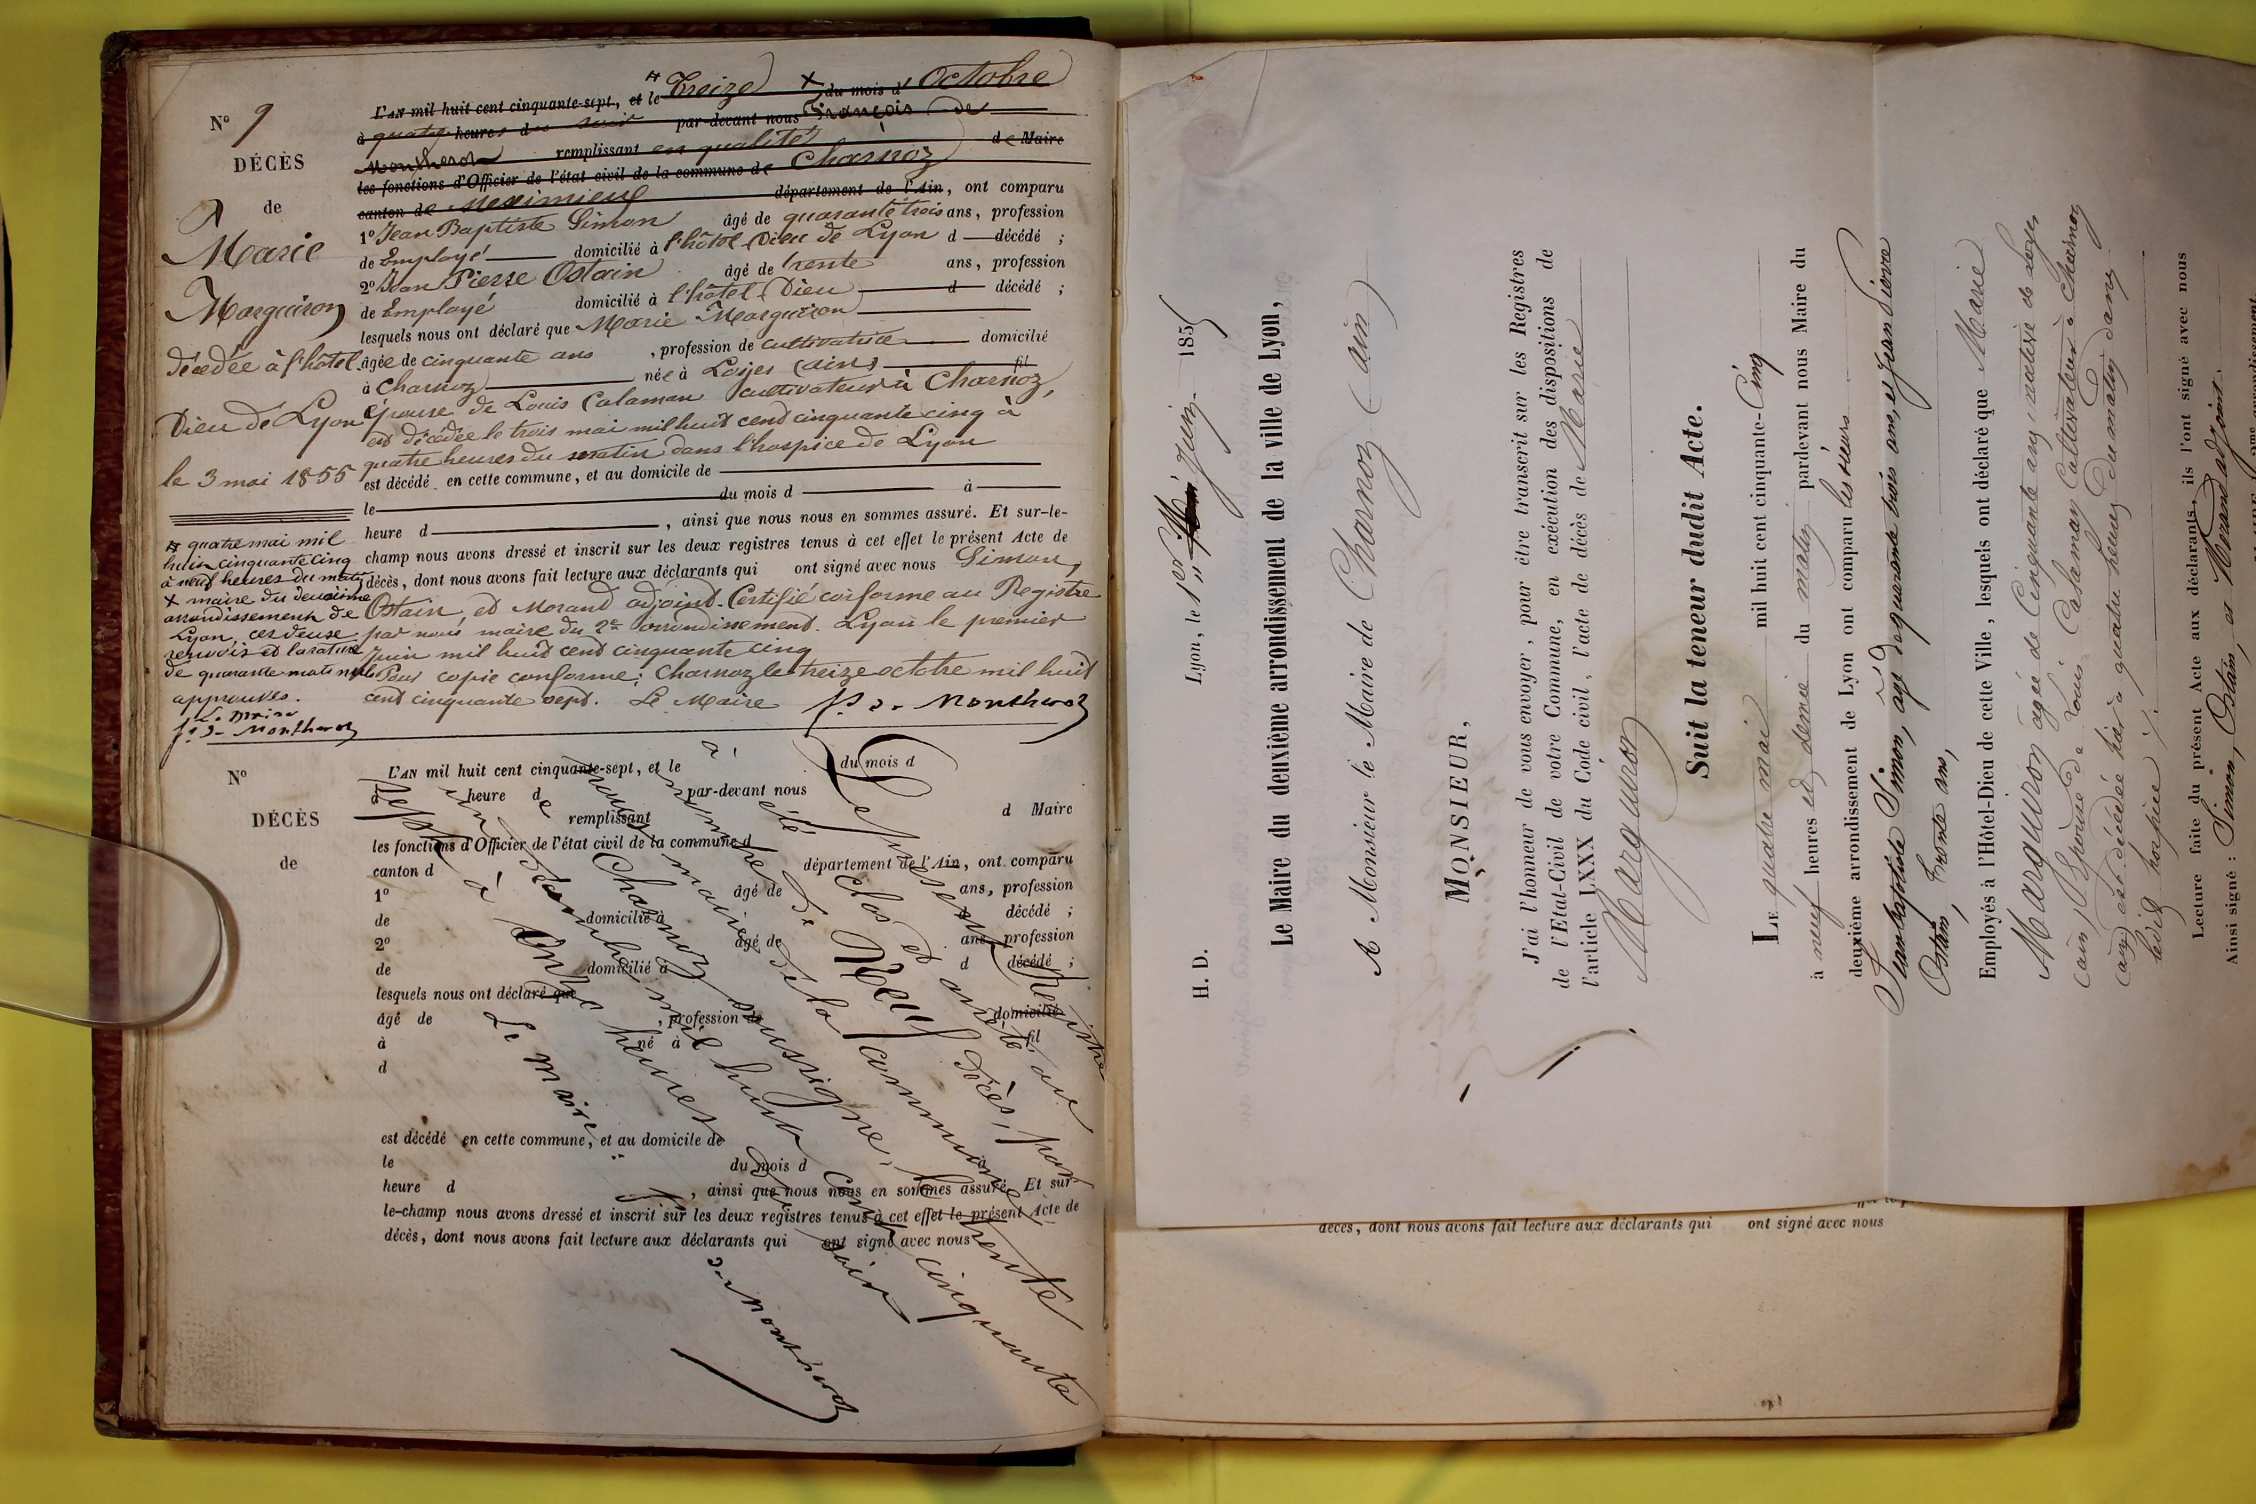 N° 9
DÉCÈS
de
Marie
Marguiron
décédée à l'hôtel
Dieu de Lyon
le 3 mai 1855
quatre mai mil
huit cinquante cinq
à neuf heures du matin
x maire du deuxième
arrondissement de
Lyon, ces deux
renvois et la rature
de quarante mots nuls
approuvés.
Le Maire
f. d. Montherot
L'AN mil huit cent cinquante-sept, et le Treize x du mois d'Octobre
à quatre heures du soir par-devant nous François de
Montherot remplissant en qualité de Maire
les fonctions d'Officier de l'état civil de la commune de Charnoz
canton de Meximieux département de l'Ain, ont comparu
1° Jean Baptiste Simon âgé de quarante trois ans, profession
de Employé domicilié à l'hôtel Dieu de Lyon d décédé ;
2° Jean Pierre Ostain âgé de trente ans, profession
de Employé domicilié à l'hôtel Dieu d décédé ;
lesquels nous ont déclaré que Marie Marguiron
âgée de cinquante ans , profession de cultivatrice domicilié
à Charnoz née à Loyes (ain) fil
épouse de Louis Calaman cultivateur à Charnoz,
est décédée le trois mai mil huit cent cinquante cinq à
quatre heures du matin dans l'hospice de Lyon
est décédé en cette commune, et au domicile de
le du mois d à
heure d , ainsi que nous nous en sommes assuré. Et sur-le-
champ nous avons dressé et inscrit sur les deux registres tenus à cet effet le présent Acte de
décès, dont nous avons fait lecture aux déclarants qui ont signé avec nous Simon,
Ostain, et Morand adjoint. Certifié conforme au Registre
par nous maire du 2e arrondissement. Lyon le premier
Juin mil huit cent cinquante cinq
Pour copie conforme: Charnoz le treize octobre mil huit
cent cinquante sept. Le Maire f. d. Montherot
N°
DÉCÈS
de
L'AN mil huit cent cinquante-sept, et le du mois d
à heure d par-devant nous
remplissant d Maire
les fonctions d'Officier de l'état civil de la commune d
canton d département de l'Ain, ont comparu
1° âgé de ans, profession
de domicilié à d décédé ;
2° âgé de ans, profession
de domicilié à d décédé ;
lesquels nous ont déclaré que
âgé de , profession de domicilié
à né à fil
d
est décédé en cette commune, et au domicile de
le du mois d à
heure d , ainsi que nous nous en sommes assuré. Et sur-
le-champ nous avons dressé et inscrit sur les deux registres tenus à cet effet le présent Acte de
décès, dont nous avons fait lecture aux déclarants qui ont signé avec nous
Le présent Registre
a été clos et arrêté au
nombre de Neuf Décès, par
nous maire de la commune
de Charnoz soussigné, le trente
un décembre mil huit cent cinquante
sept à Onze heures du soir
Le maire:
f. d. Montherot
H. D. Lyon, le 1er Juin 1855
Le Maire du deuxième arrondissement de la ville de Lyon,
A Monsieur le Maire de Charnoz (ain)
MONSIEUR,
J'ai l'honneur de vous envoyer, pour être transcrit sur les Registres
de l'Etat-Civil de votre Commune, en exécution des dispositions de
l'article LXXX du Code civil, l'acte de décès de Marie
Marguiron
Suit la teneur dudit Acte.
LE quatre mai mil huit cent cinquante-Cinq
à neuf heures et demie du matin pardevant nous Maire du
deuxième arrondissement de Lyon ont comparu les sieurs
Jean Baptiste Simon, agé de quarante trois ans, et Jean Pierre
Ostain, trente ans,
Employés à l'Hôtel-Dieu de cette Ville, lesquels ont déclaré que Marie
Marguiron âgée de Cinquante ans, native de Loyes
(ain) Epouse de Louis Calaman Cultivateur à Charnoz
(ain) est décédée hier à quatre heures du matin dans
ledit hospice
Lecture faite du présent Acte aux déclarants, ils l'ont signé avec nous
Ainsi signé : Simon, Ostain, et Morand adjoint.
décès, dont nous avons fait lecture aux déclarants qui ont signé avec nous